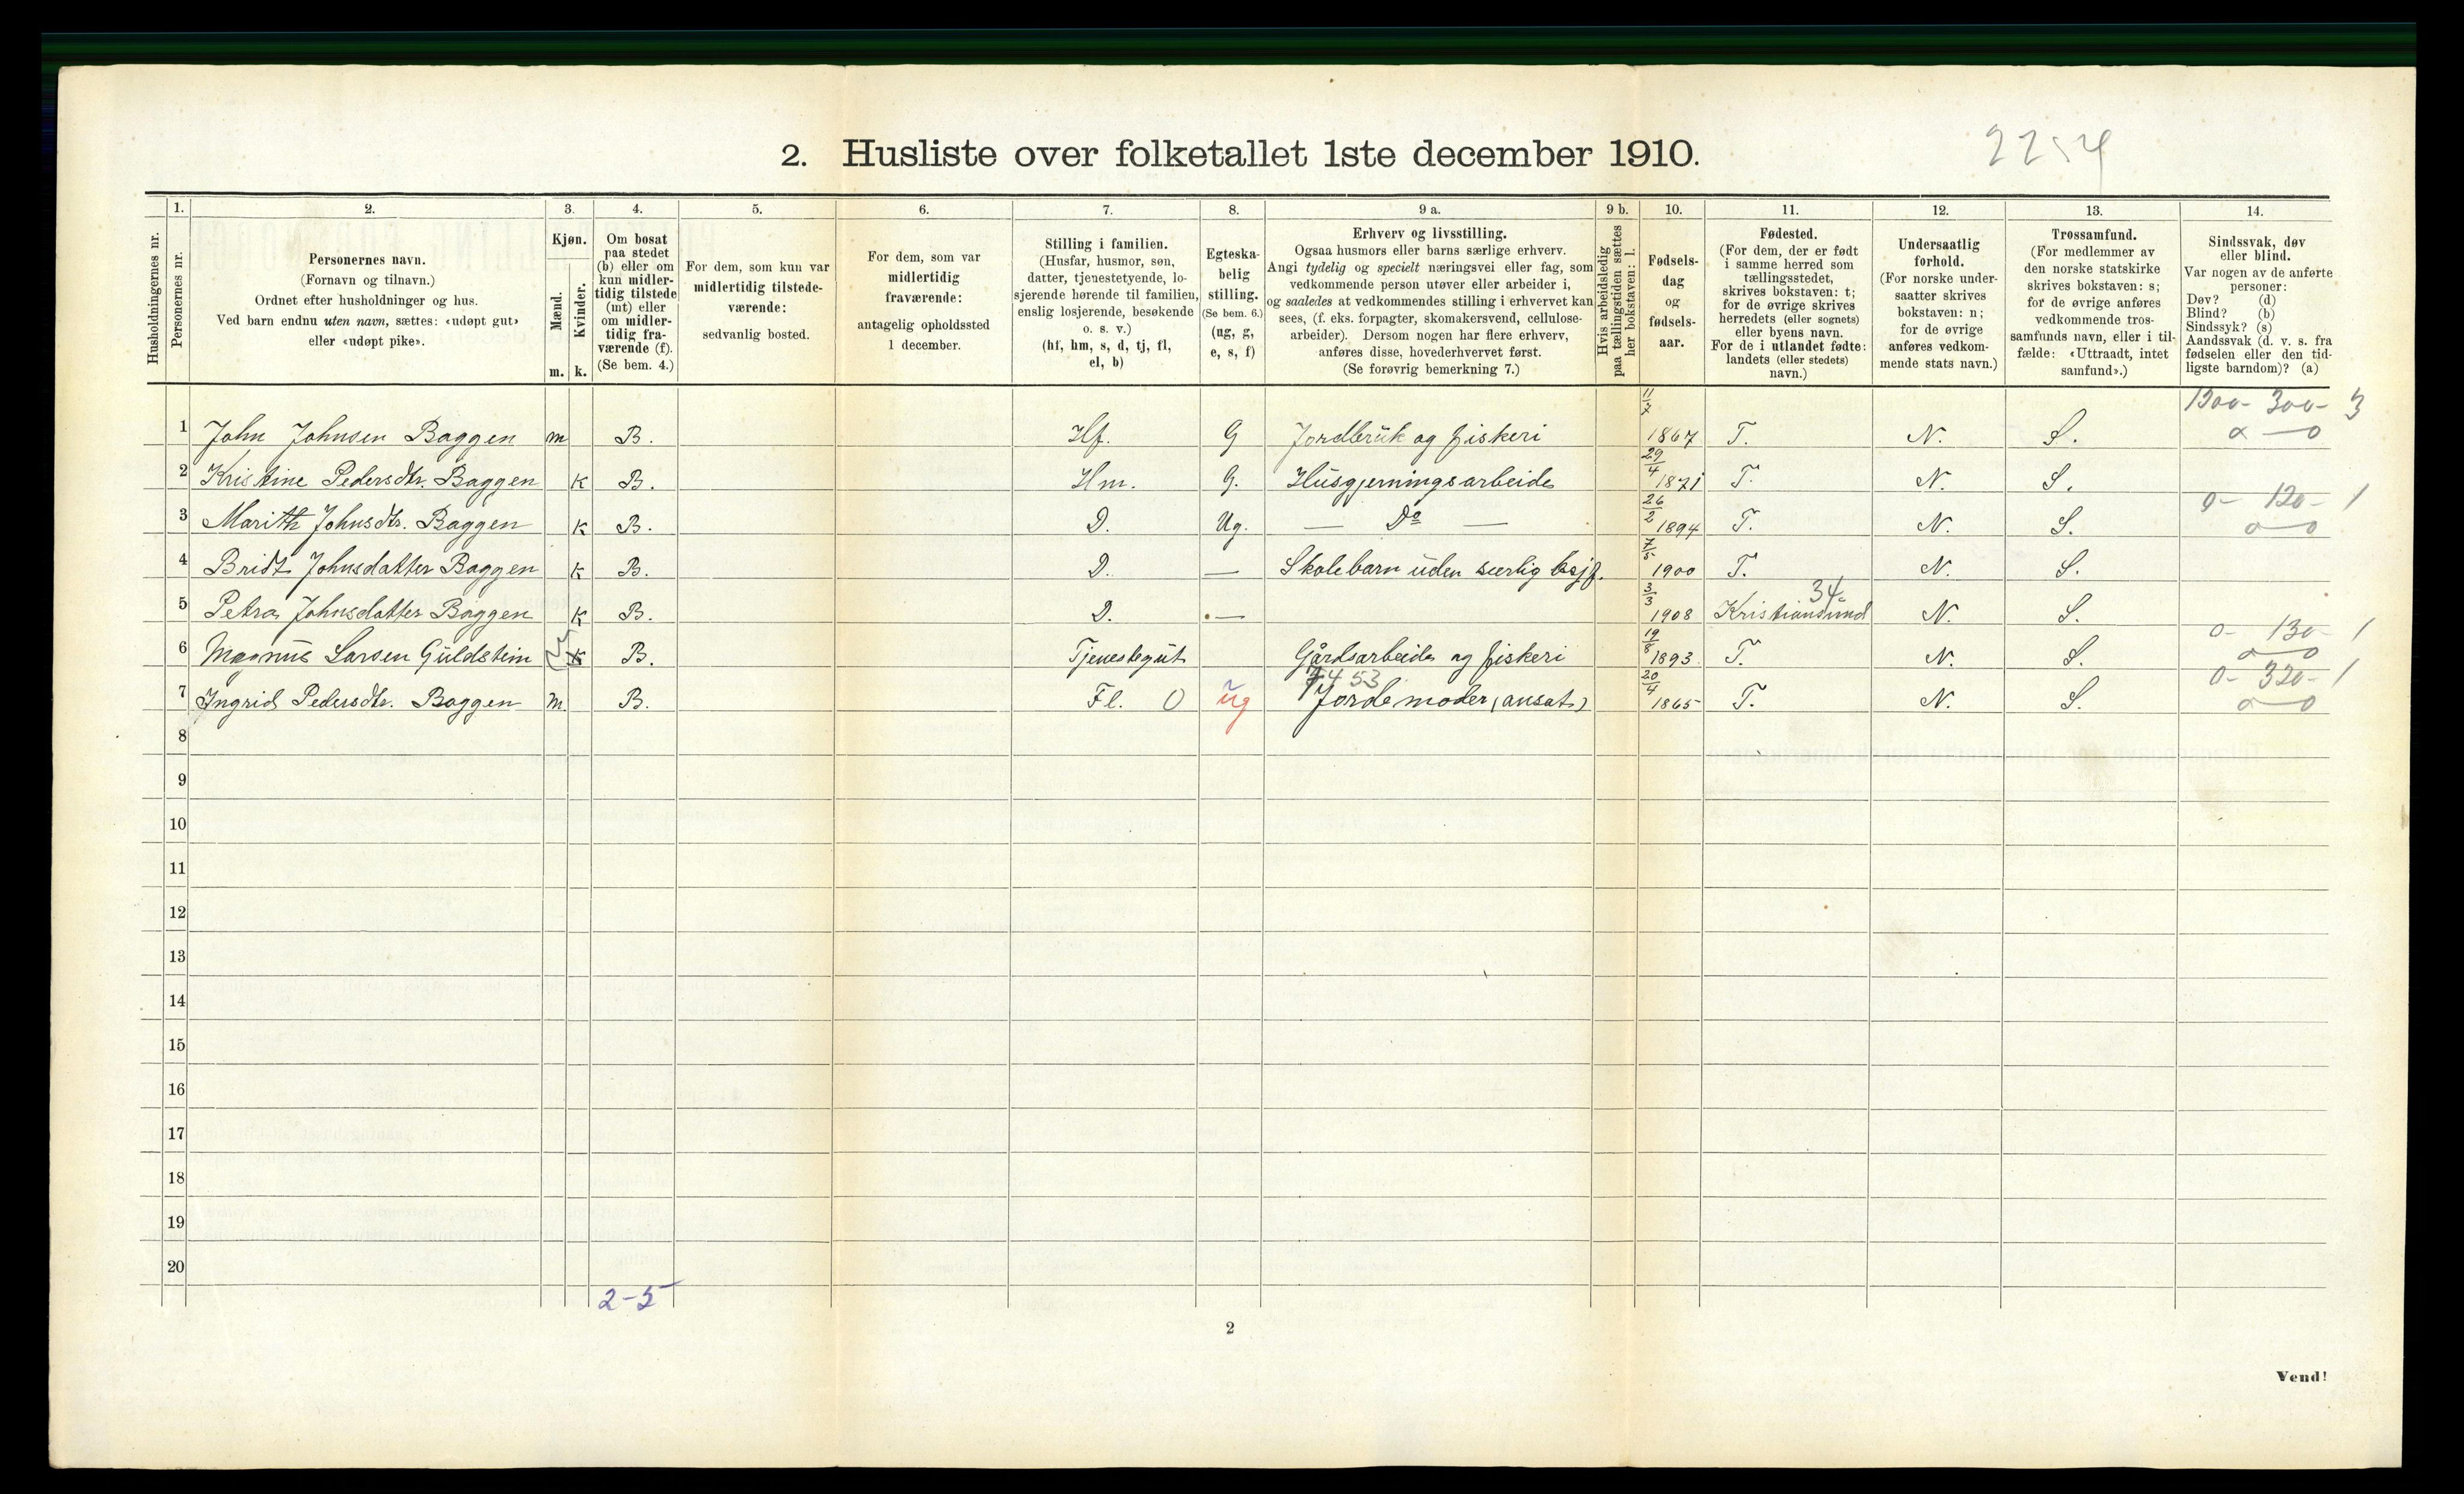 2. Husliste over folketallet 1ste december 1910.
2254
Husholdningernes nr.
1. Personernes nr.
2. Personernes navn.
(Fornavn og tilnavn.)
Ordnet efter husholdninger og hus.
Ved barn endnu uten navn, sættes: «udøpt gut»
eller «udøpt pike».
3. Kjøn.
Mænd. m.
Kvinder. k.
4. Om bosat
paa stedet
(b) eller om
kun midler-
tidig tilstede
(mt) eller
om midler-
tidig fra-
værende (f).
(Se bem. 4.)
5. For dem, som kun var
midlertidig tilstede-
værende:
sedvanlig bosted.
6. For dem, som var
midlertidig
fraværende:
antagelig opholdssted
1 december.
7. Stilling i familien.
(Husfar, husmor, søn,
datter, tjenestetyende, lo-
sjerende hørende til familien,
enslig losjerende, besøkende
o. s. v.)
(hf, hm, s, d, tj, fl,
el, b)
8. Egteska-
belig
stilling.
(Se bem. 6.)
(ug, g,
e, s, f)
9 a. Erhverv og livsstilling.
Ogsaa husmors eller barns særlige erhverv.
Angi tydelig og specielt næringsvei eller fag, som
vedkommende person utøver eller arbeider i,
og saaledes at vedkommendes stilling i erhvervet kan
sees, (f. eks. forpagter, skomakersvend, cellulose-
arbeider). Dersom nogen har flere erhverv,
anføres disse, hovederhvervet først.
(Se forøvrig bemerkning 7.)
9 b. Hvis arbeidsledig
paa tællingstiden sættes
her bokstaven: l.
10. Fødsels-
dag
og
fødsels-
aar.
11. Fødested.
(For dem, der er født
i samme herred som
tællingsstedet,
skrives bokstaven: t;
for de øvrige skrives
herredets (eller sognets)
eller byens navn.
For de i utlandet fødte:
landets (eller stedets)
navn.)
12. Undersaatlig
forhold.
(For norske under-
saatter skrives
bokstaven: n;
for de øvrige
anføres vedkom-
mende stats navn.)
13. Trossamfund.
(For medlemmer av
den norske statskirke
skrives bokstaven: s;
for de øvrige anføres
vedkommende tros-
samfunds navn, eller i til-
fælde: «Uttraadt, intet
samfund».)
14. Sindssvak, døv
eller blind.
Var nogen av de anførte
personer:
Døv? (d)
Blind? (b)
Sindssyk? (s)
Aandssvak (d. v. s. fra
fødselen eller den tid-
ligste barndom)? (a)
1300- 300- 3
1 John Johnsen Baggen m B. Hf. G Jordbruk og fiskeri 11/7 1867 T. N. S. o — o
2 Kristine Pedersdtr. Baggen k B. Hm. G. Husgjerningsarbeide 29/4 1871 T. N. S.
0- 120- 1
3 Marith Johnsdtr. Baggen k B. D. Ug. — Do — 26/2 1894 T. N. S. o — o
4 Bridt Johnsdatter Baggen k B. D. — Skolebarn uden særlig bsjf. 7/5 1900 T. N. S.
34
5 Petra Johnsdatter Baggen k B. D. — 3/3 1908 Kristiansund N. S.
0- 130- 1
6 Magnus Larsen Guldstein k B. Tjenestegut Gårdsarbeide og fiskeri 19/8 1893 T. N. S. o — o
7453 0- 320- 1
7 Ingrid Pedersdtr. Baggen m B. Fl. O ug Jordemoder (ansat) 20/4 1865 T. N. S. o — o
8
9
10
11
12
13
14
15
16
17
18
19
20
2-5
2
Vend!